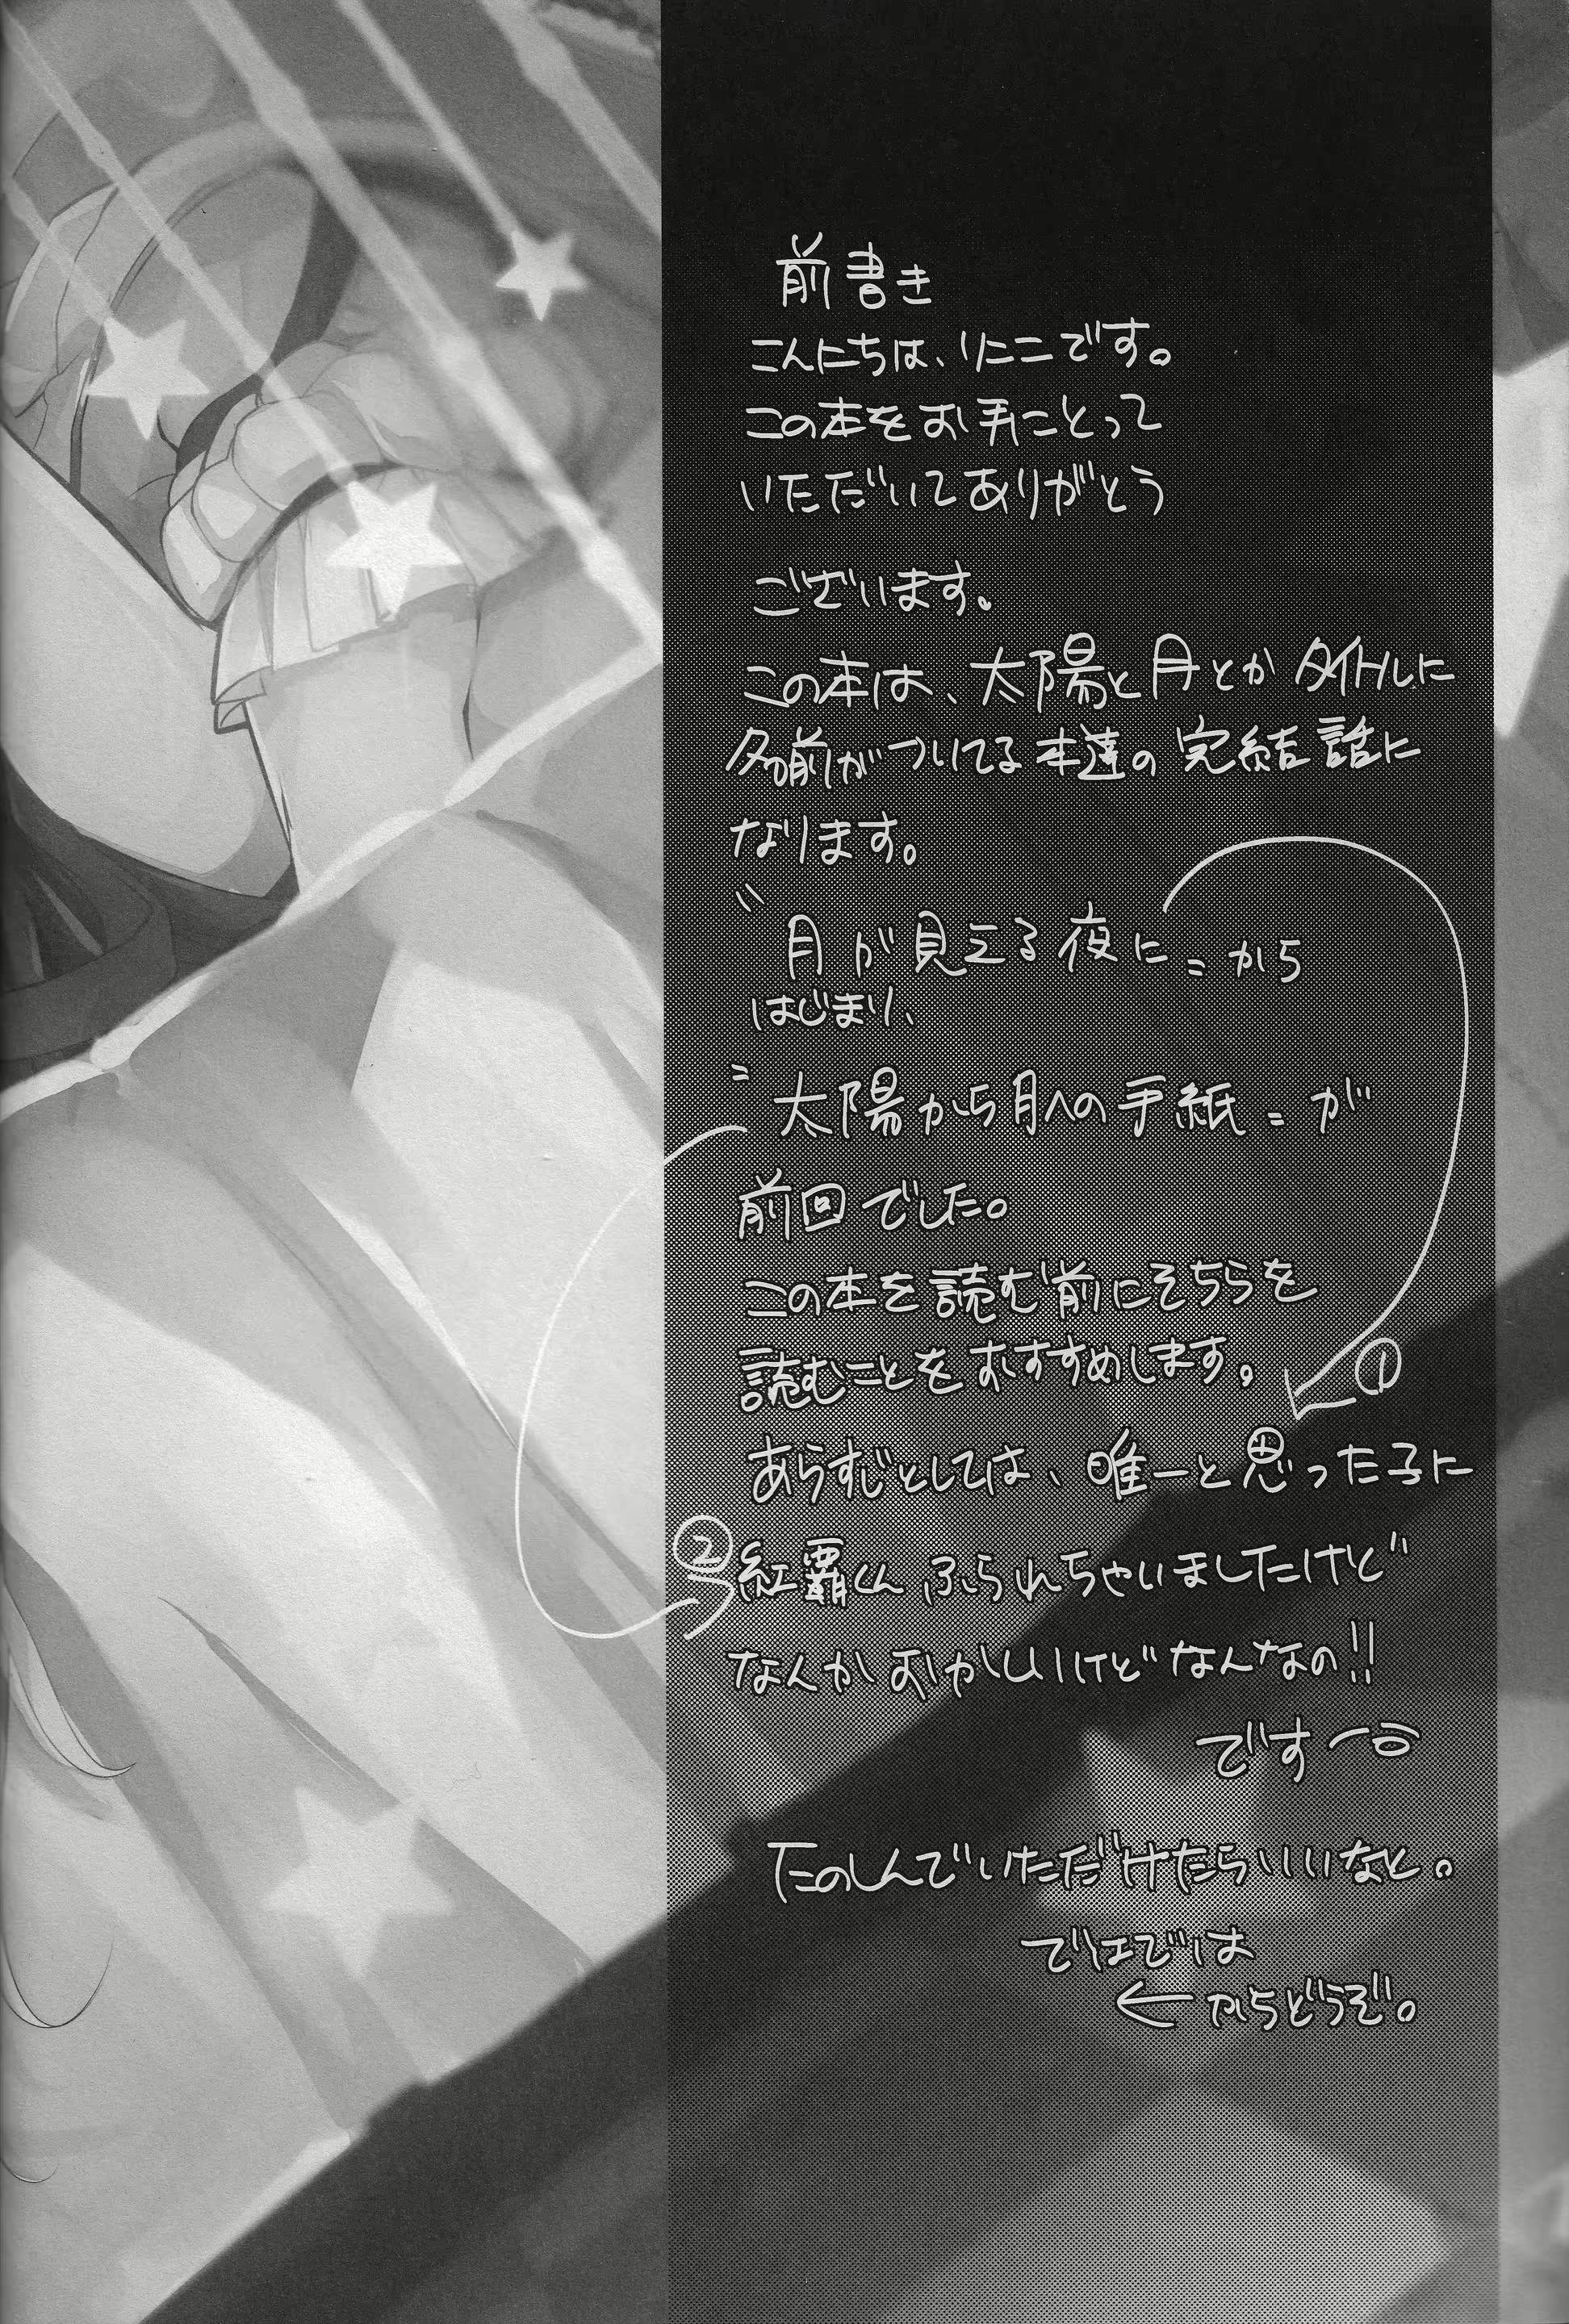 前書き
こんにちは、りこにです。
この本をお手にとって
いただいてありがとう
ございます。
この本は、太陽と月とか タイトルに
名前がついてる本達の完結話に
なります。
〝月が見える夜に〟から
はじまり、
〝太陽から月への手紙〟が
前回でした。
この本を読む前にそちらを
読むことをおすすめします。
①
あらすじとしては、唯一と思った子に
② 紅覇くん ふられちゃいましたけど
なんかおかしいけどなんなの!!
です
たのしんでいただけたらいいなと。
ではでは
← からどうぞ。